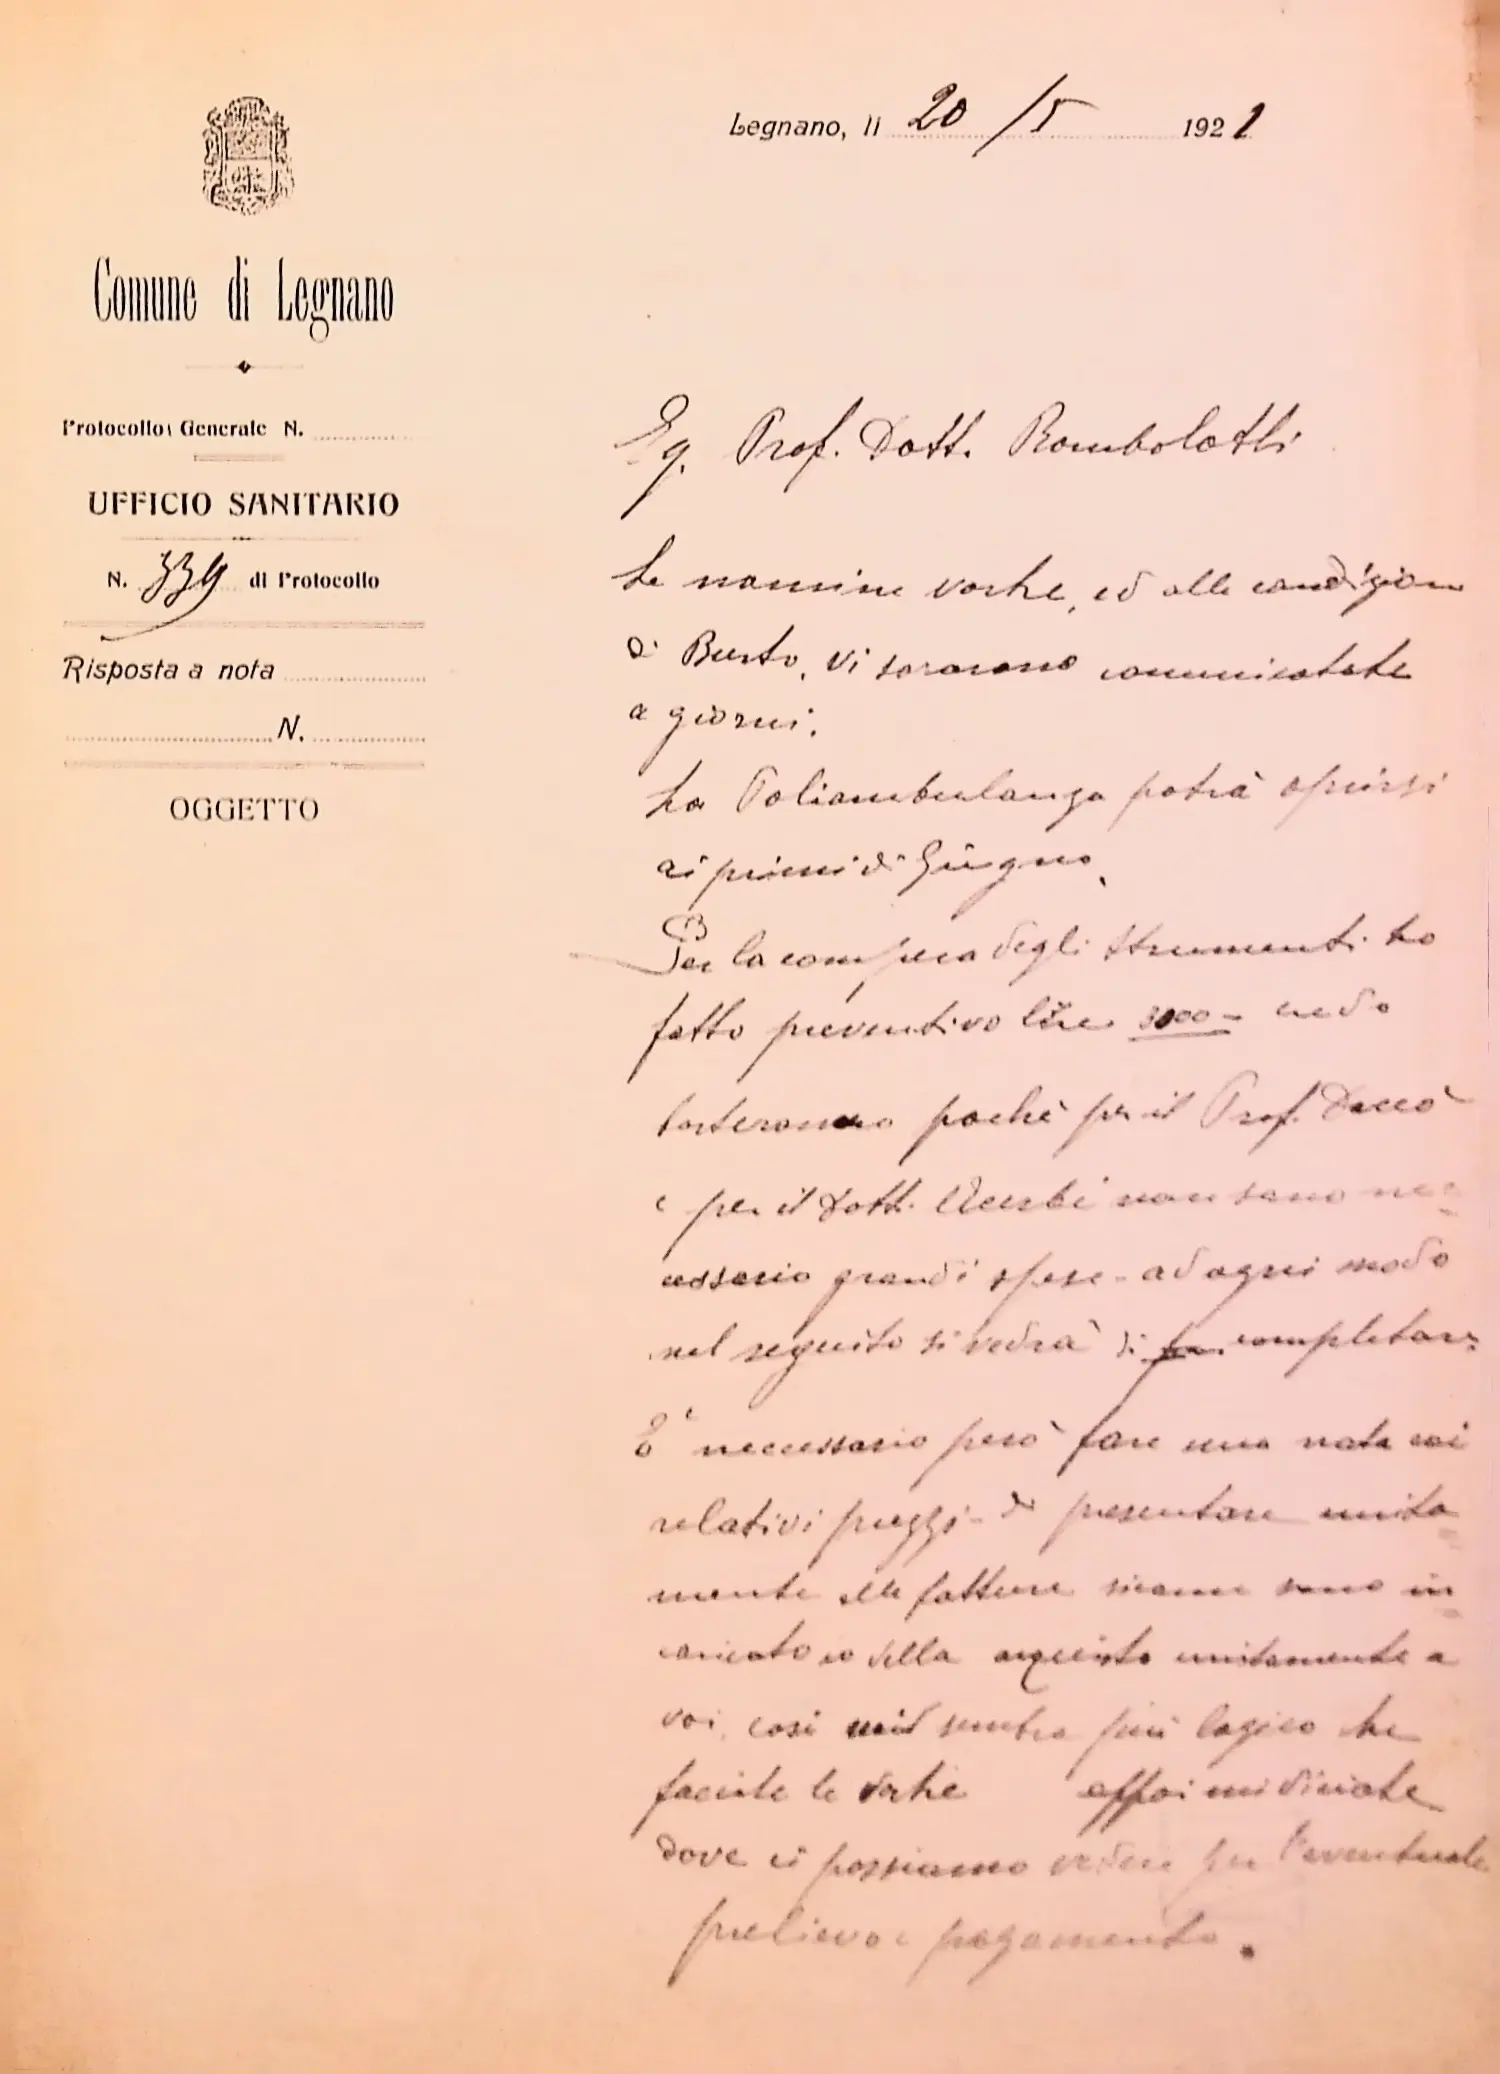 Legnano, li 20/5 1921
Comune di Legnano
Protocollo Generale N.
UFFICIO SANITARIO
N. 339 di Protocollo
Risposta a nota
N.
OGGETTO
Eg. Prof. Dott. Rombolotti
Le nomine vostre, ed alle condizioni
di Busto, vi saranno comunicate
a giorni.
La Poliambulanza potrà aprirsi
ai primi di Giugno.
Per la compera degli strumenti ho
fatto preventivo lire 3000 - credo
basteranno poichè per il Prof. Daccò
e per il Dott. Acerbi non sono ne-
cessario grandi spese - ad ogni modo
nel seguito si vedrà di completare
E' neccessario però fare una nota coi
relativi prezzi - da presentare unita-
mente alle fatture siccome sono in-
caricato io della acquisto unitamente a
voi, così mi sembra più logico che
facciate le vostre e poi mi diciate
dove ci possiamo vedere per l'eventuale
prelievo e pagamento.